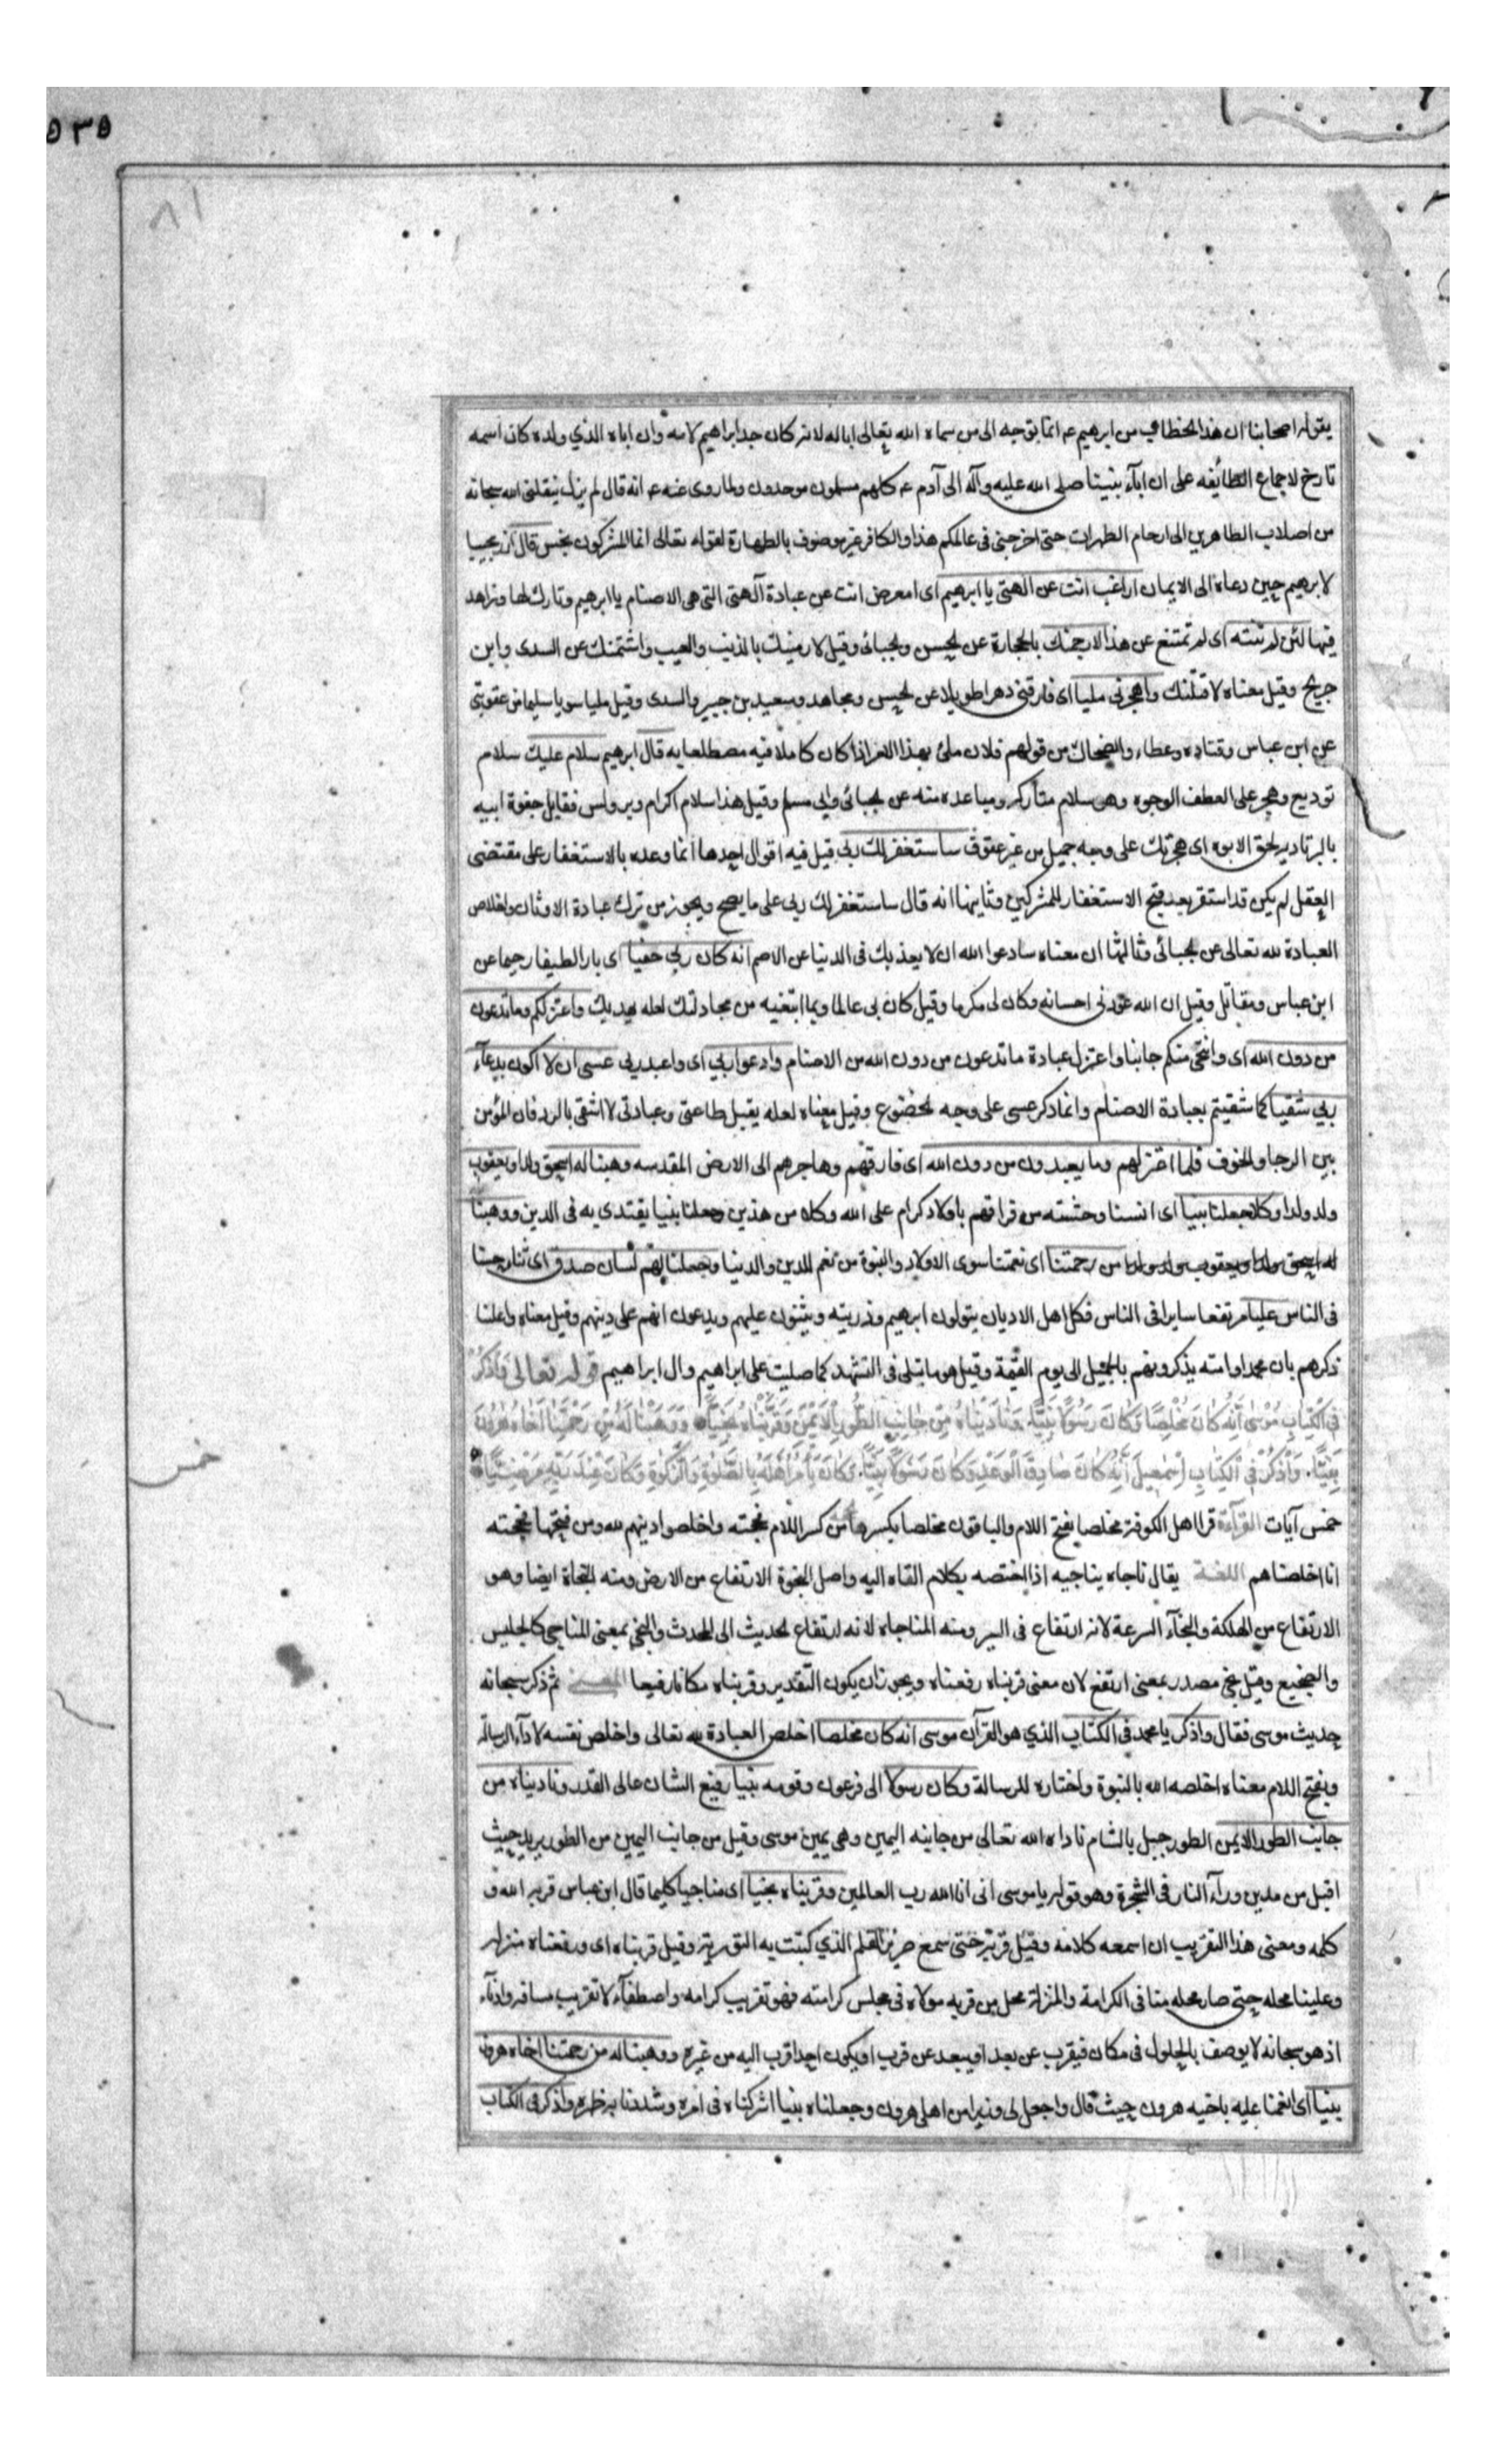 ٥٣٥
٨١
يقوله اصحابنا ان هذا الخطاب من ابرهيم عم انما توجه الى من سماه الله تعالى ابا له لانه كان جد ابراهيم لامه وان اباه الذي ولده كان اسمه
تارخ لاجماع الطائفه على ان ابآء نبينا صلى الله عليه وآله الى آدم عم كلهم مسلمون موحدون ولما روى عنه عم انه قال لم يزل ينقلنى الله سبحانه
من اصلاب الطاهرين الى ارحام المطهرات حتى اخرجنى فى عالمكم هذا والكافر غير موصوف بالطهارة لقوله تعالى انما المشركون نجس قال آزر مجيبا
لابرهيم حين دعاه الى الايمان اراغب انت عن الهتى يا ابرهيم اى امعرض انت عن عبادة آلهتى التى هى الاصنام يا ابرهيم وتارك لها وزاهد
فيها لئن لم تنته اى لم تمتنع عن هذا لارجمنك بالحجارة عن الحسن والجبائى وقيل لارمينك بالذنب والعيب واشتمنك عن السدى وابن
جريج وقيل معناه لاقتلنك واهجرنى مليا اى فارقنى دهرا طويلا عن الحسن ومجاهد وسعيد بن جبير والسدى وقيل مليا سويا سليما من عقوبتى
عن ابن عباس وقتاده وعطاء والضحاك من قولهم فلان ملئ بهذا الامر اذا كان كاملا فيه مضطلعا به قال ابرهيم سلام عليك سلام
توديع وهجر على الطف الوجوه وهو سلام متاركه ومباعده منه عن الجبائى وابى مسلم وقيل هذا سلام اكرام وبر فقابل جفوة ابيه
بالبر تاديه لحق الابوه اى هجرتك على وجه جميل من غير عقوق ساستغفر لك ربى قيل فيه اقوال احدها انما وعده بالاستغفار على مقتضى
العقل لم يكن قد استقر بعد قبح الاستغفار للمشركين وثانيها انه قال ساستغفر لك ربى على ما يصح ويجوز من ترك عبادة الاوثان واخلاص
العبادة لله تعالى عن الجبائى وثالثها ان معناه سادعوا الله ان لا يعذبك فى الدنيا عن الاصم انه كان بى حفيا اى بارا لطيفا رحيما عن
ابن عباس ومقاتل وقيل ان الله عودنى احسانه وكان لى مكرما وقيل كان بى عالما وبما ابتغيه من مجادلتك لعله يهديك واعتزلكم وما تدعون
من دون الله اى واتنحى منكم جانبا واعتزل عبادة ما تدعون من دون الله من الاصنام وادعوا ربى اى واعبد ربى عسى ان لا اكون بدعآء
ربى شقيا كما شقيتم بعبادة الاصنام وانما ذكر عسى على وجه الخضوع وقيل معناه لعله يقبل طاعتى وعبادتى لا اشقى بالرد فان المؤمن
بين الرجا والخوف فلما اعتزلهم وما يعبدون من دون الله اى فارقهم وهاجرهم الى الارض المقدسه وهبنا له اسحق ولدا ويعقوب
ولد ولدا وكلا جعلنا نبيا اى انسنا وحشته من فراقهم باولاد كرام على الله وكلا من هذين جعلنا نبيا يقتدى به فى الدين ووهبنا
من رحمتنا اى نعمتنا سوى الاولاد والنبوة من نعم الدين والدنيا وجعلنا لهم لسان صدق اى ثنا حسنا
فى الناس عليا مرتفعا سايرا فى الناس فكل اهل الاديان يتولون ابرهيم وذريته ويثنون عليهم ويدعون انهم على دينهم وقيل معناه واعلنا
ذكرهم بان محمدا وامته يذكرونهم بالجميل الى يوم القيمة وقيل هو ما يتلى فى التشهد كما صليت على ابراهيم وال ابراهيم قوله تعالى وَاذْكُرْ
فِى الْكِتَابِ مُوسٰى اِنَّهُ كَانَ مُخْلِصًا وَكَانَ رَسُولًا نَبِيًّا وَنَادَيْنَاهُ مِنْ جَانِبِ الطُّورِ الْاَيْمَنِ وَقَرَّبْنَاهُ نَجِيًّا وَوَهَبْنَا لَهُ مِنْ رَحْمَتِنَا اَخَاهُ هٰرُونَ
نَبِيًّا وَاذْكُرْ فِى الْكِتَابِ اِسْمٰعِيلَ اِنَّهُ كَانَ صَادِقَ الْوَعْدِ وَكَانَ رَسُولًا نَبِيًّا وَكَانَ يَاْمُرُ اَهْلَهُ بِالصَّلٰوةِ وَالزَّكٰوةِ وَكَانَ عِنْدَ رَبِّهِ مَرْضِيًّا
خمس
خمس آيات القرآءة قرا اهل الكوفة مخلصا بفتح اللام والباقون مخلصا بكسرها من كسر اللام فحجته واخلصوا دينهم لله ومن فتحها فحجته
انا اخلصناهم اللغة يقال ناجاه يناجيه اذا اختصه بكلام القاه اليه واصل النجوة الارتفاع من الارض ومنه النجاة ايضا وهو
الارتفاع من الهلكة والنجآء السرعة لانه ارتفاع فى السير ومنه المناجاه لانه ارتفاع الحديث الى المحدث والنجى بمعنى المناجى كالجليس
والضجيع وقيل نجى مصدر بمعنى ارتفع لان معنى قربناه رفعناه ويجوز ان يكون التقدير وقربناه مكانا رفيعا المعنى ثم ذكر سبحانه
حديث موسى فقال واذكر يا محمد فى الكتاب الذي هو القرآن موسى انه كان مخلصا اخلص العبادة لله تعالى واخلص نفسه لادآء الرسالة
وبفتح اللام معناه اخلصه الله بالنبوة واختاره للرسالة وكان رسولا الى فرعون وقومه نبيا رفيع الشان عالى القدر وناديناه من
جانب الطور الايمن الطور جبل بالشام ناداه الله تعالى من جانبه اليمين وهى يمين موسى وقيل من جانب اليمين من الطور يريد حيث
اقبل من مدين ورآء النار فى الشجرة وهو قوله يا موسى انى انا الله رب العالمين وقربناه نجيا اى مناجيا كليما قال ابن عباس قربه الله و
كلمه ومعنى هذا التقريب ان اسمعه كلامه وقيل قربه حتى سمع صرير القلم الذي كتبت به التوريه وقيل قربناه اى ورفعناه منزله
وعلينا محله حتى صار محله منا فى الكرامة والمنزلة محل من قربه مولاه فى مجلس كرامته فهو تقريب كرامه واصطفآء لا تقريب مسافه وادنآء
اذ هو سبحانه لا يوصف بالحلول فى مكان فيقرب عن بعد او يبعد عن قرب او يكون احد اقرب اليه من غيره ووهبنا له من رحمتنا اخاه هرون
نبيا اى انعمنا عليه باخيه هرون حيث قال واجعل لى وزيرا من اهلى هرون وجعلناه نبيا اشركناه فى امره وشددنا به ظهره واذكر فى الكتاب